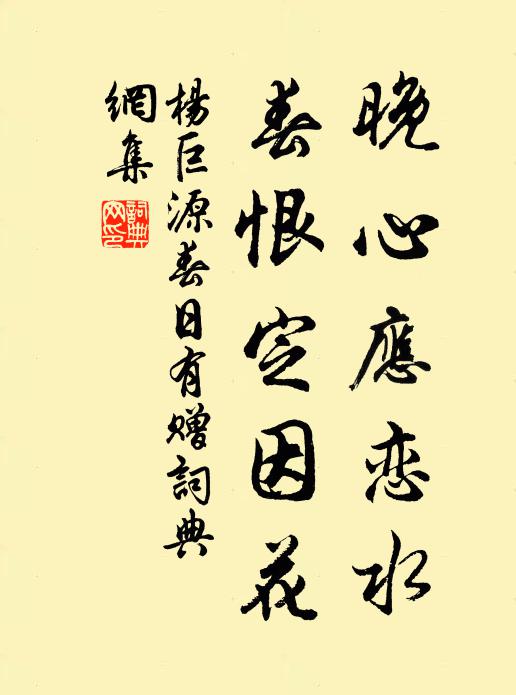 晚心應恋水
春恨定因花
楊巨源春日有赠詞典
網集
詞典
网印